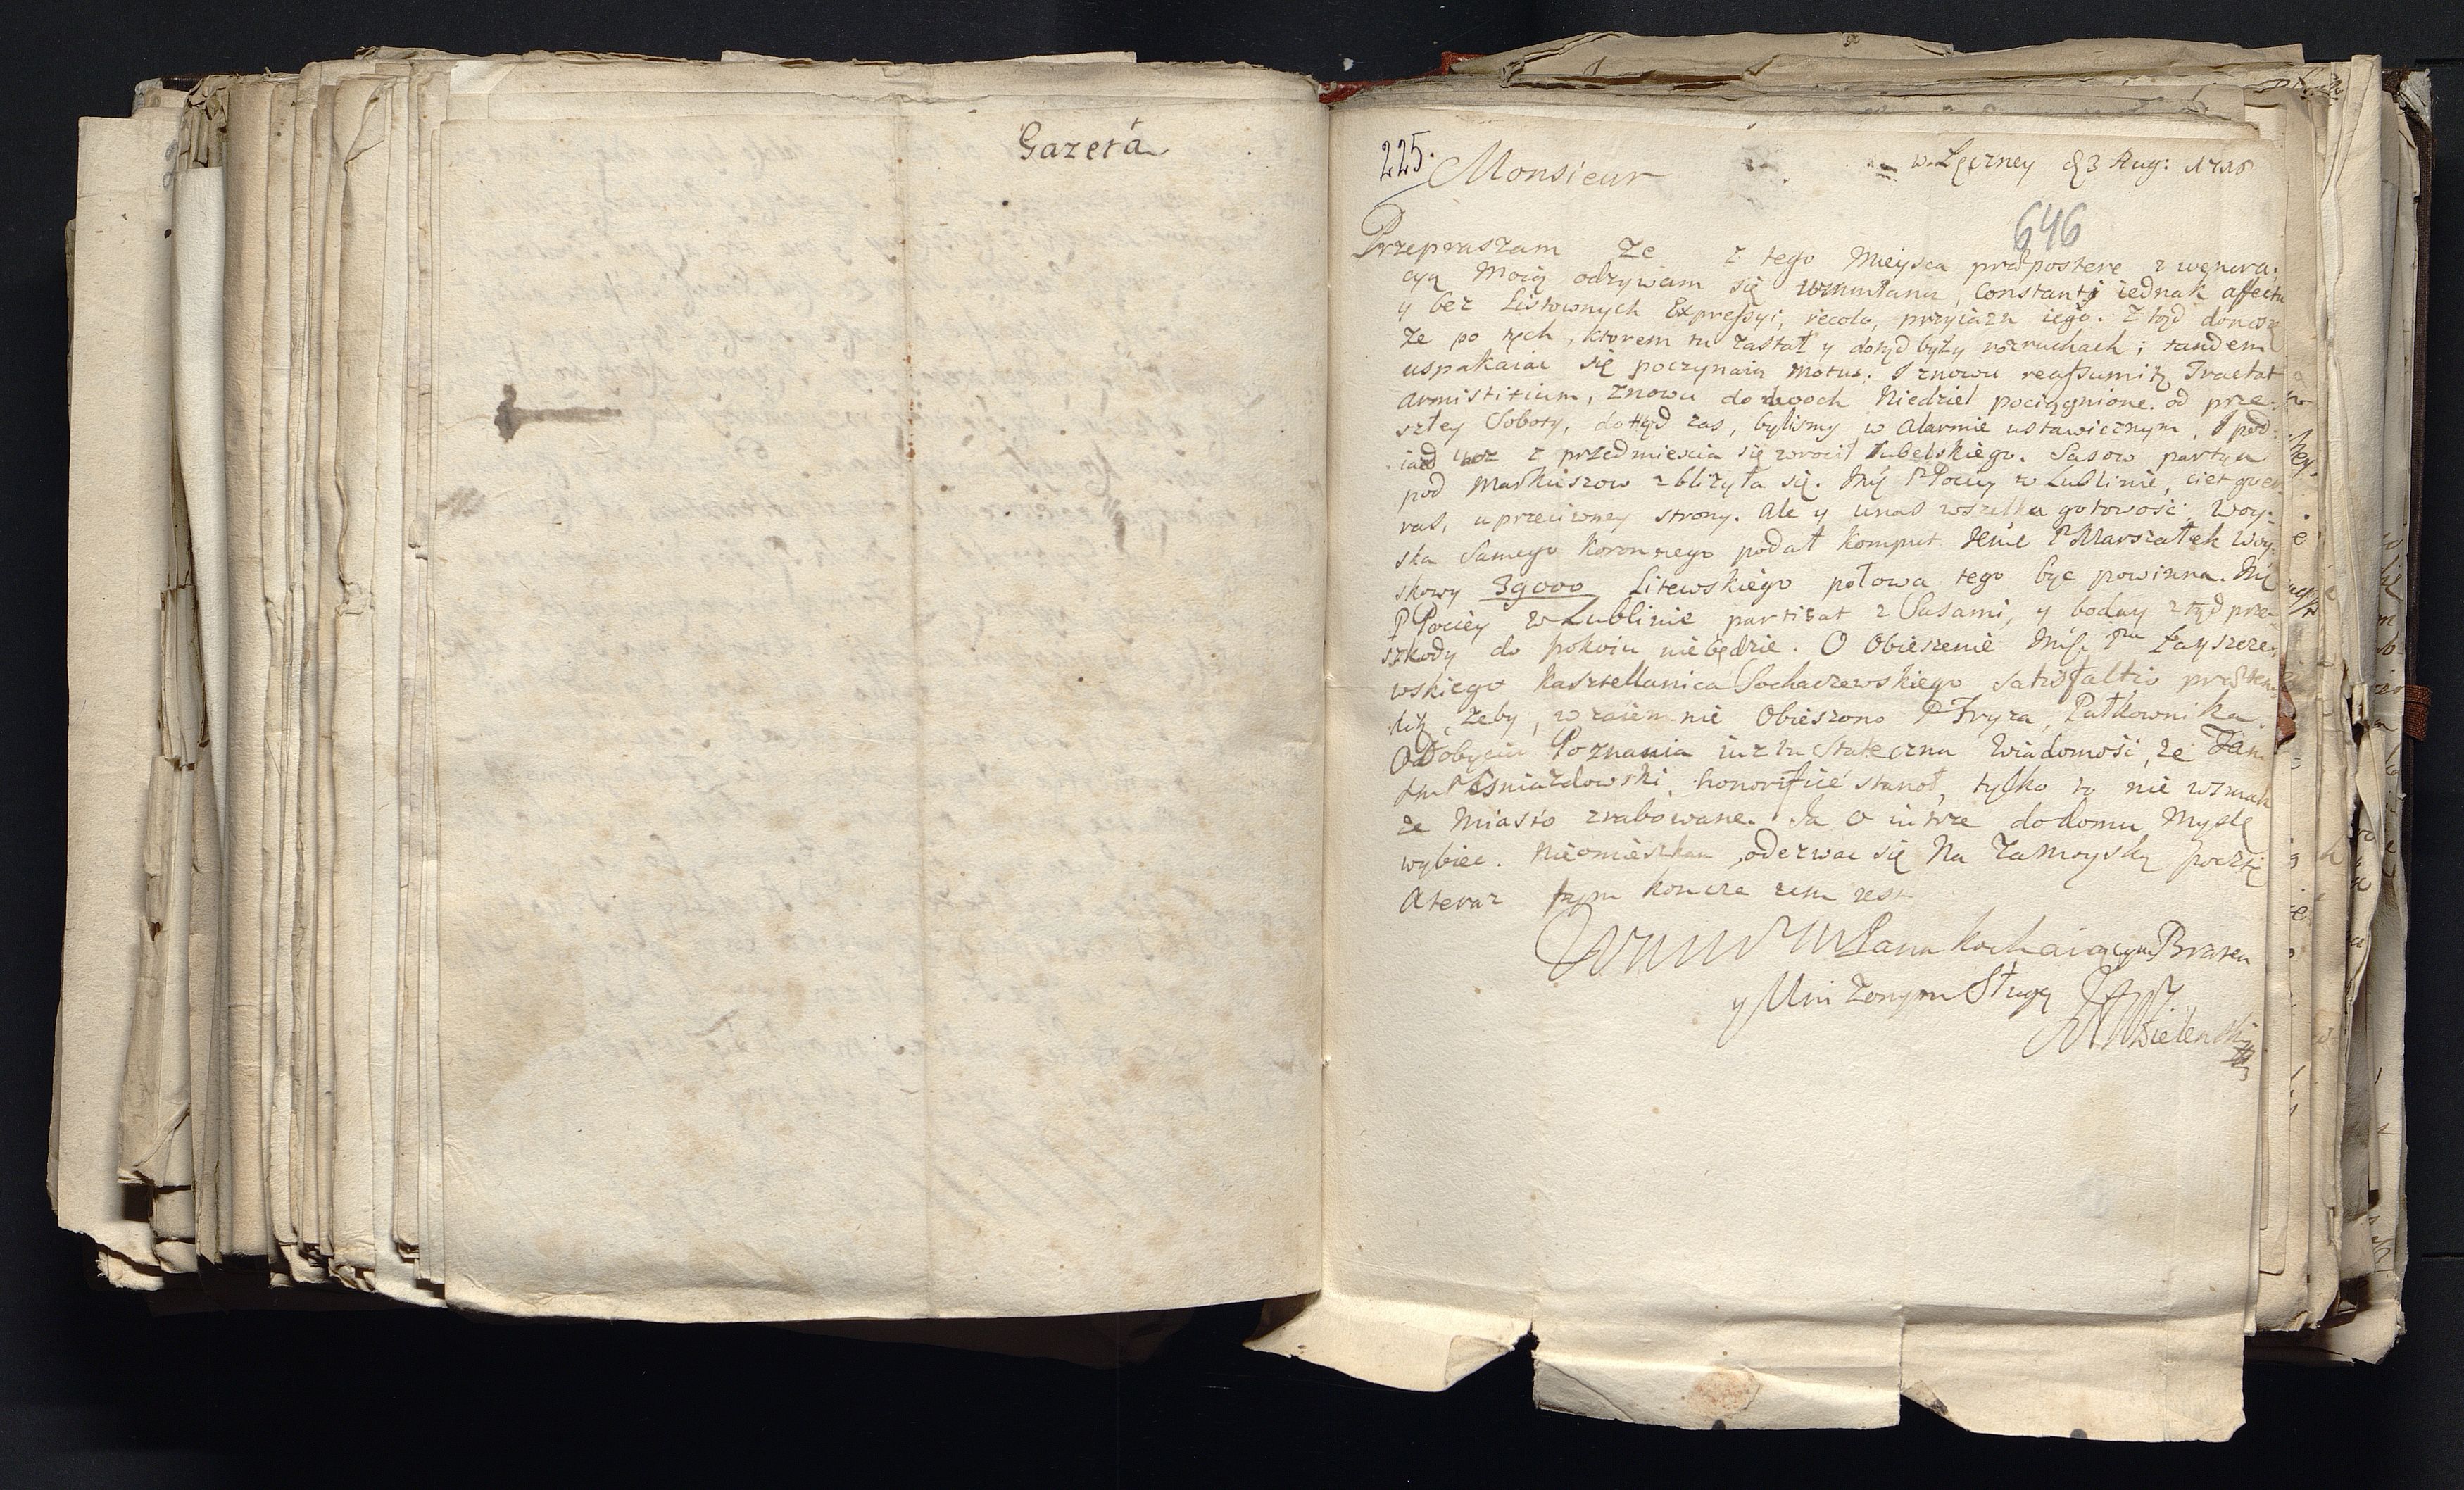 Gazeta
225.
Monsieur
w Łęczney d 3 Aug: 1716
646
Przepraszam Ze z tego Mieysca præpostere z wenera:
cyą Moią odzywam się constanti iednak affectu
y bez Listownych Expressyi, recolo, przyiazn iego. Ztąd donoszę
Ze po tych, ktorem tu zastał y dotąd były rozruchach; tandem
uspakaiac się poczynaią motus. I znowu reassumit Tractat
Armistitium, znowu do dwoch Niedziel pociągnione. od prze:
szłey Soboty, dotąd zas, bylismy w Alarmie ustawicznym, I pod:
iazd z przedmiescia się wrocił Lubelskiego. Sasow partya
pod Markuszow zblizyła się. P Pociey w Lublinie,
ras, uprzeciwney strony. Ale y unas wszelka gotowość, Woy:
ska Samego Koronnego podał Komput Jmć P Marszałek Woy:
skowy 39000 Litewskiego połowa tego byc powinna. Jmć
P Pociey w Lublinie z Sasami, y boday ztąd prze:
szkody do pokoiu niebędzie. O Obieszenie Zayszcze:
wskiego Kasztellanica Sochaczewskiego satisfactio præten:
zeby, wzaiemnie Obieszono P Fryza, Pułkownika.
O Dobyciu Poznania iuz tu Stateczna Wiadomość, ze
Gniazdowski, honorifice stanoł, tylko to nie wsmak
ze Miasto zrabowane. Ja o iutrze dodomu Myslę
wybiec. Nieomieszkam, odezwac się Na Zamoyską pocztę
A teraz tym koncze zem iest
Pana kochaiącym Bratem
y Uni zonym Sługą
Wielenski